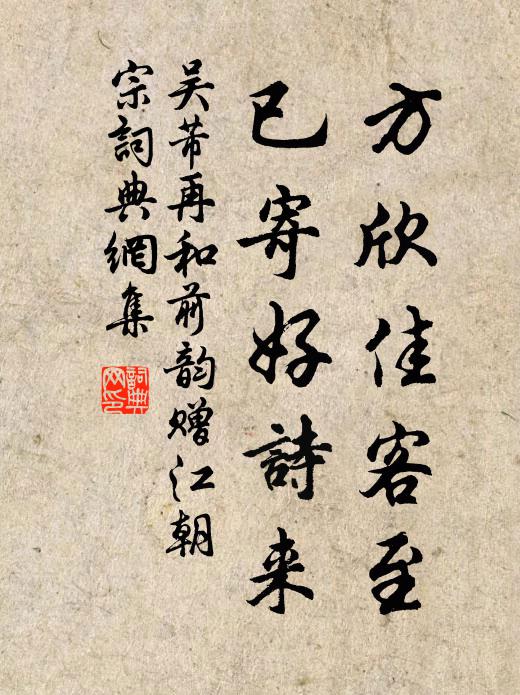 方欣佳客至
已寄好詩来
吴芾再和前韵赠江朝
宗詞典網集
詞典
网印